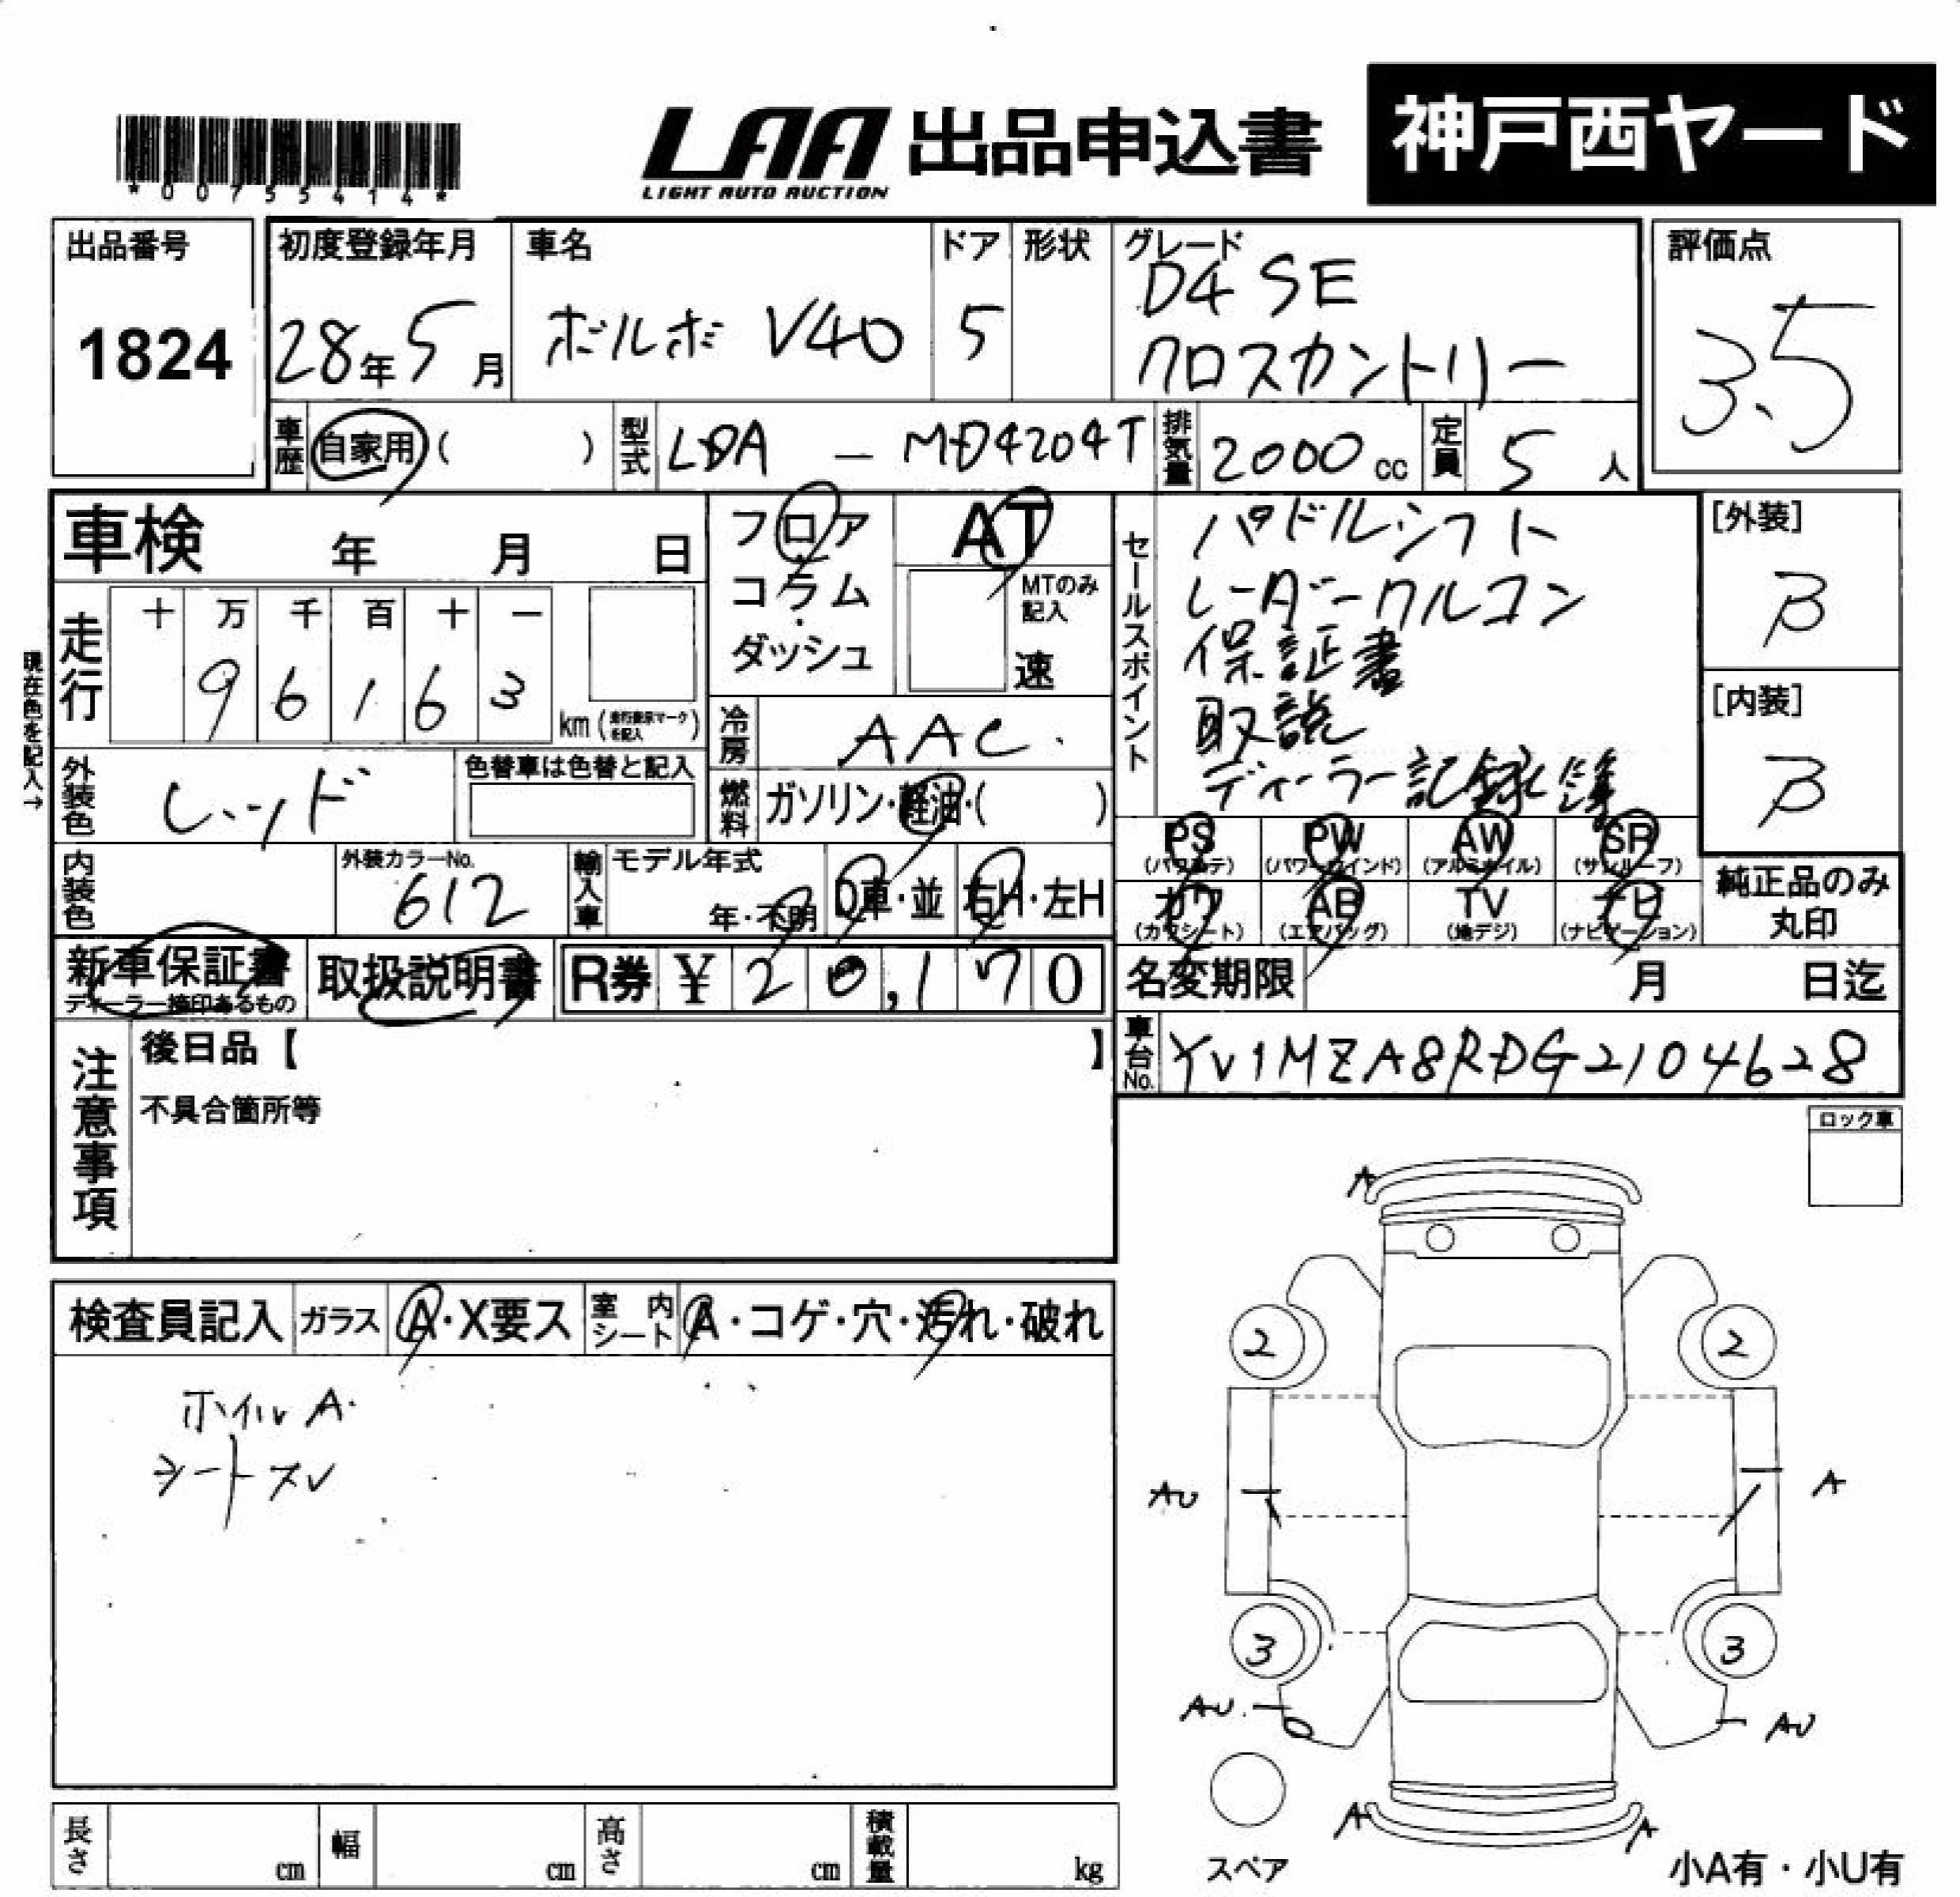 *00755414*
LAA 出品申込書 神戸西ヤード
LIGHT AUTO AUCTION
出品番号
1824
初度登録年月
28年5月
車名
ボルボ V40
ドア
5
形状
グレード
D4 SE
クロスカントリー
評価点
3.5
車歴 自家用( )
型式 LDA - MD4204T
排気量 2000cc
定員 5人
車検 年 月 日
フロア
コラム
ダッシュ
AT
MTのみ記入
速
走行
十 万 千 百 十 一
9 6 1 6 3
km(走行表示マークを記入)
現在色を記入→
冷房 AAC.
燃料 ガソリン・軽油・( )
外装色 レッド
色替車は色替と記入
内装色
外装カラーNo.
612
輸入車
モデル年式
年・不明
D車・並
右H・左H
セールスポイント
パドルシフト
レーダークルコン
保証書
取説
ディーラー記録簿
[外装]
B
[内装]
B
PS PW AW SR
(パワステ) (パワーウインド) (アルミホイル) (サンルーフ)
カワ AB TV ナビ
(カワシート) (エアバッグ) (地デジ) (ナビゲーション)
純正品のみ
丸印
新車保証書
ディーラー捺印あるもの
取扱説明書
R券 ¥ 20,170
名変期限 月 日迄
車台No. YV1MZA8RDG2104628
注意事項
後日品【 】
不具合箇所等
ロック車
検査員記入 ガラス A・X要ス 室内シート A・コゲ・穴・汚れ・破れ
ホイルA.
シートスレ
A
2 2
AU A
3 3
AU. AU
A A
スペア
小A有・小U有
長さ cm 幅 cm 高さ cm 積載量 kg